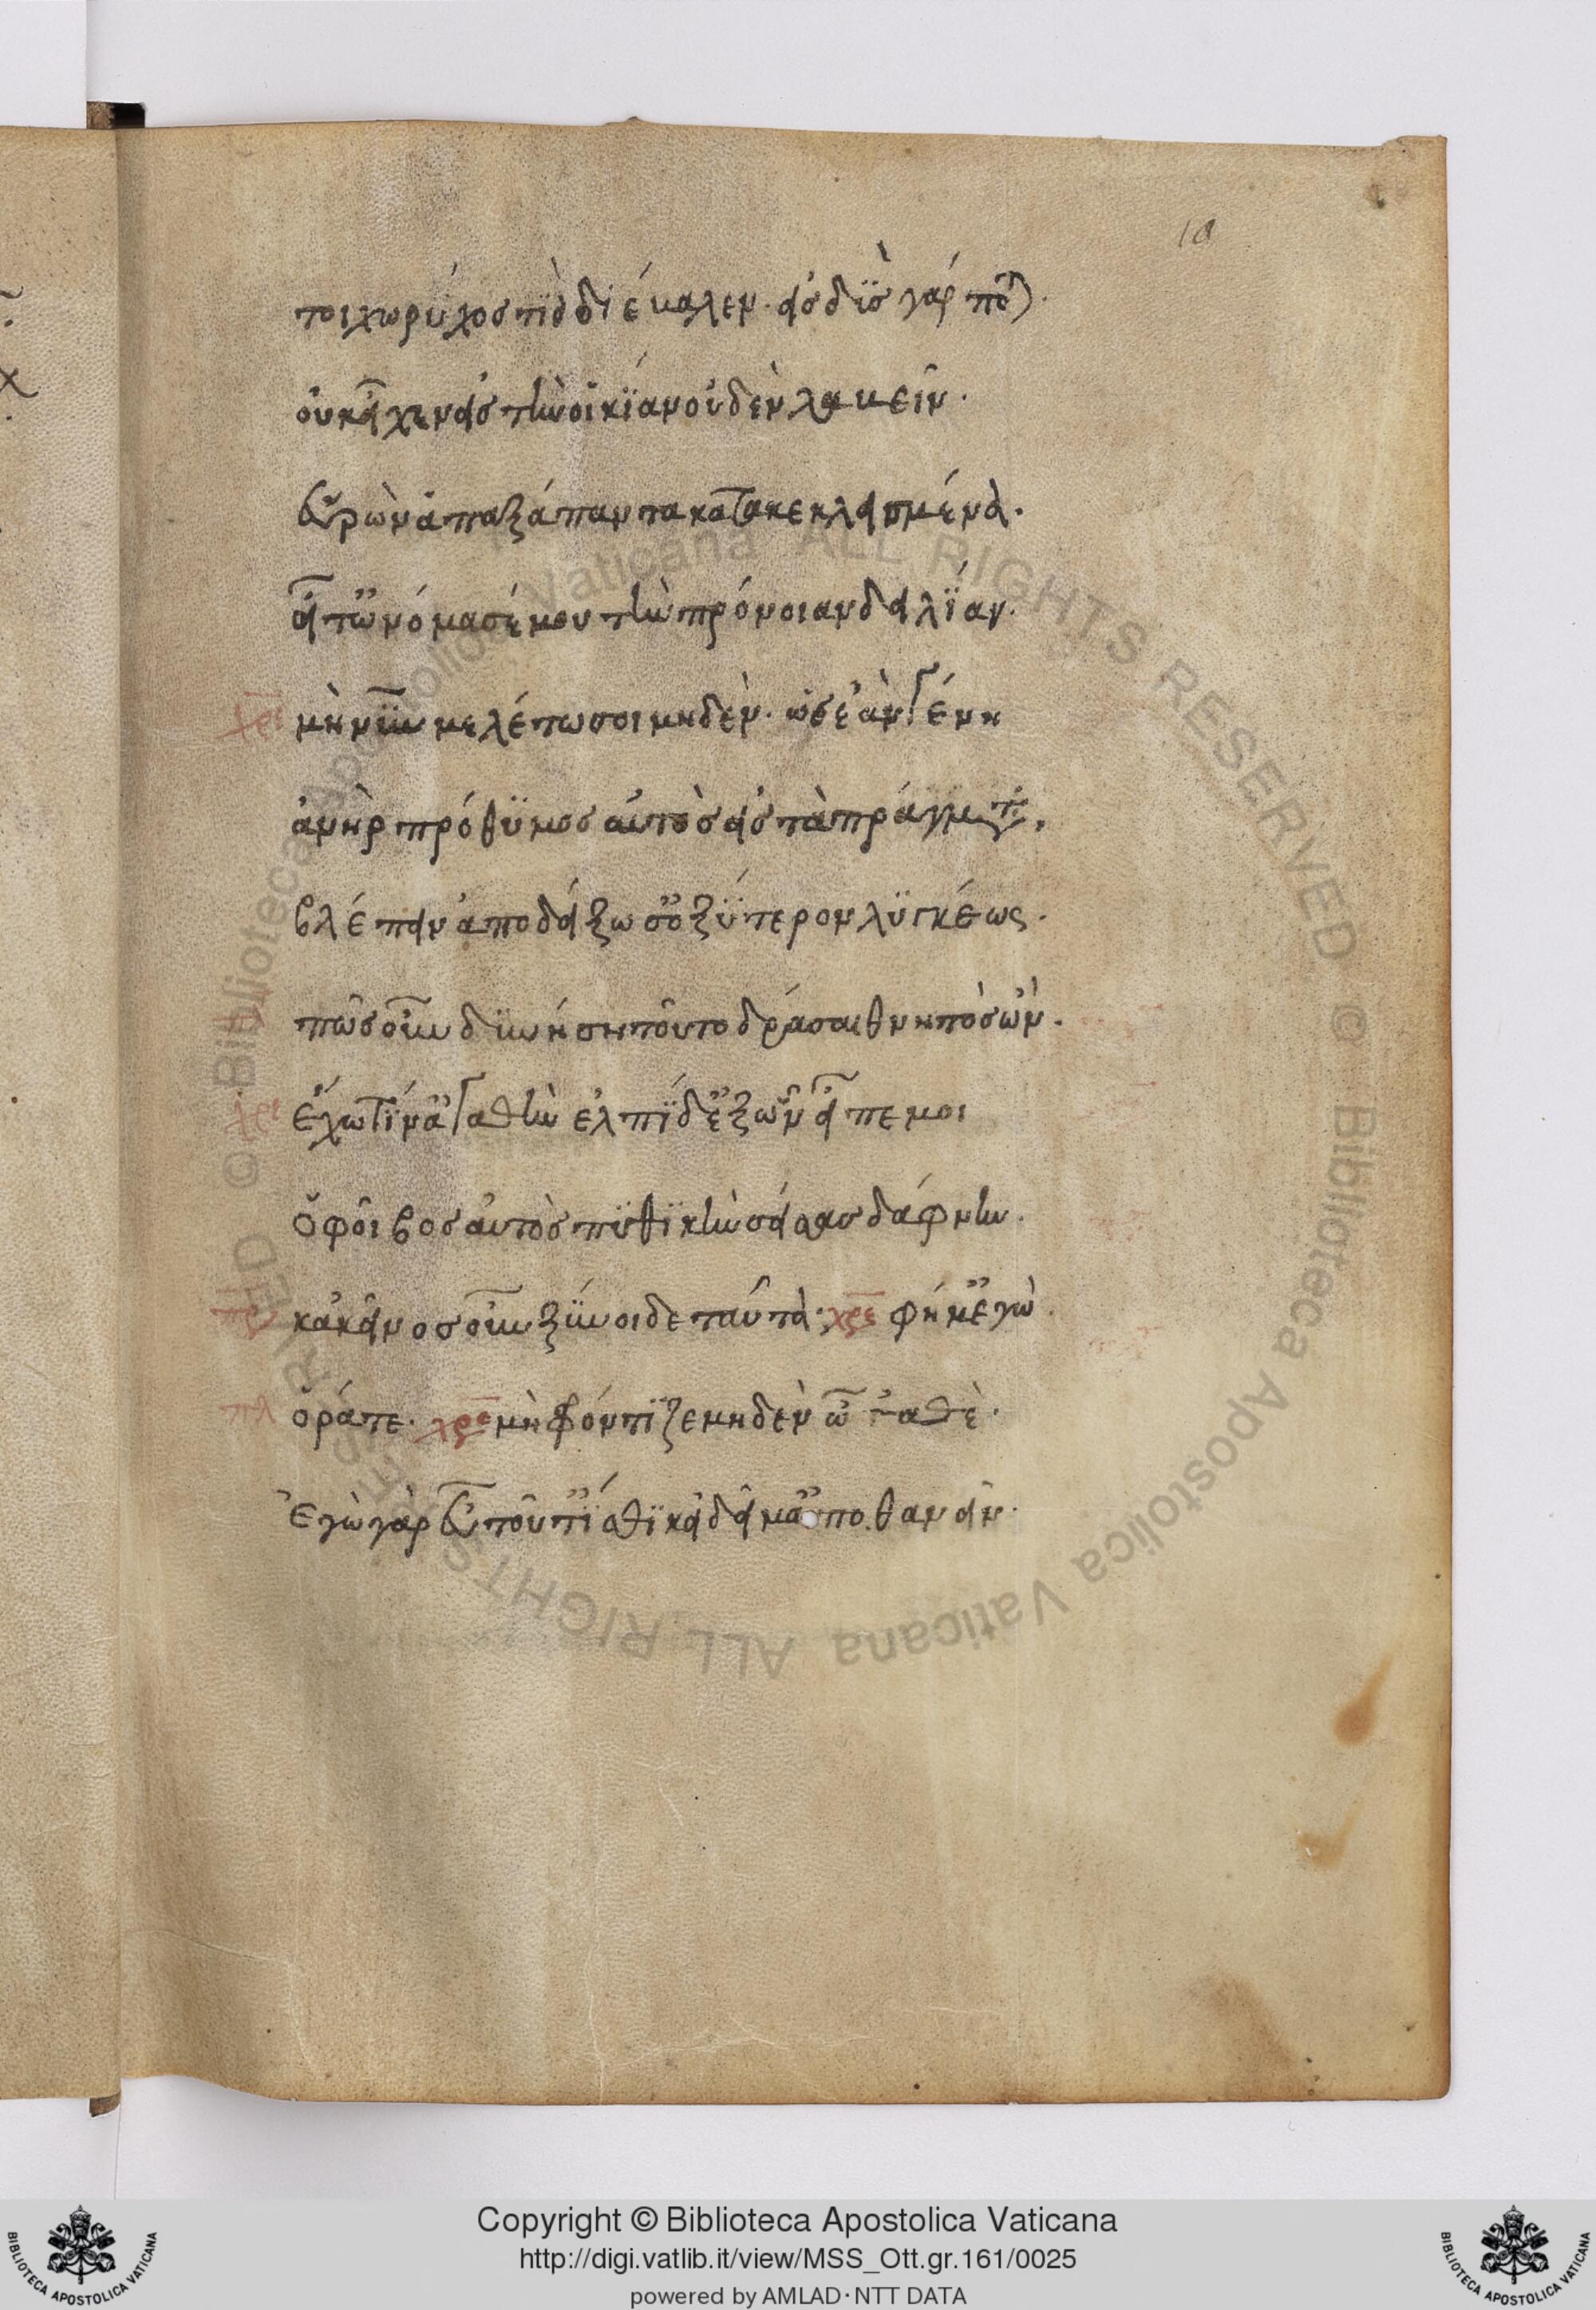 10
τοιχωρύχος τὶς διέβαλεν· εἰσδὺς γάρ ποτε.
οὐκ εἶχεν εἰς τὴν οἰκίαν οὐδὲν λαβεῖν.
εὑρὼν ἁπαξάπαντα κατακεκλεισμένα.
εἶτ' ὠνόμασέ μου τὴν πρόνοιαν δειλίαν.
χρε μὴ νῦν μελέτω σοι μηδέν. ὡς ἐὰν γένῃ
ἀνὴρ πρόθυμος αὐτὸς εἰς τὰ πράγματα,
βλέπειν ἀποδείξω σ' ὀξύτερον λυγκέως.
πῶς οὖν δυνήσῃ τοῦτο δρᾶσαι θνητὸς ὤν.
χρε ἔχω τίν' ἀγαθὴν ἐλπίδ' ἐξ ὧν εἶπέ μοι
ὁ φοῖβος αὐτὸς πυθικὴν σείσας δάφνην.
πλ κἀκεῖνος οὖν ξύνοιδε ταῦτα· χρε φήμ' ἐγώ.
πλ ὁρᾶτε. χρε μὴ φρόντιζε μηδὲν ὦ 'γαθέ.
ἐγὼ γὰρ εὖ τοῦτ' ἴσθι κἂ δεῖ μ' ἀποθανεῖν.
Copyright © Biblioteca Apostolica Vaticana
http://digi.vatlib.it/view/MSS_Ott.gr.161/0025
powered by AMLAD · NTT DATA
BIBLIOTECA APOSTOLICA VATICANA
BIBLIOTECA APOSTOLICA VATICANA
© Biblioteca Apostolica Vaticana ALL RIGHTS RESERVED © Biblioteca Apostolica Vaticana ALL RIGHTS RESERVED